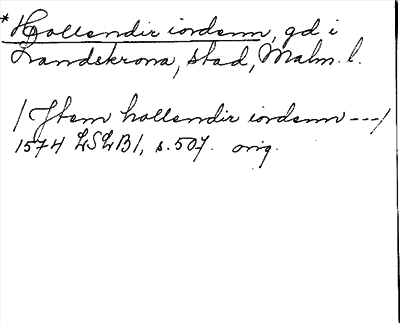 * Hollendir iordenn, gd i
Landskrona, stad, Malm. l.
/ Jtem hollendir iordenn ---/
1574 LSLB1, s. 507. orig.